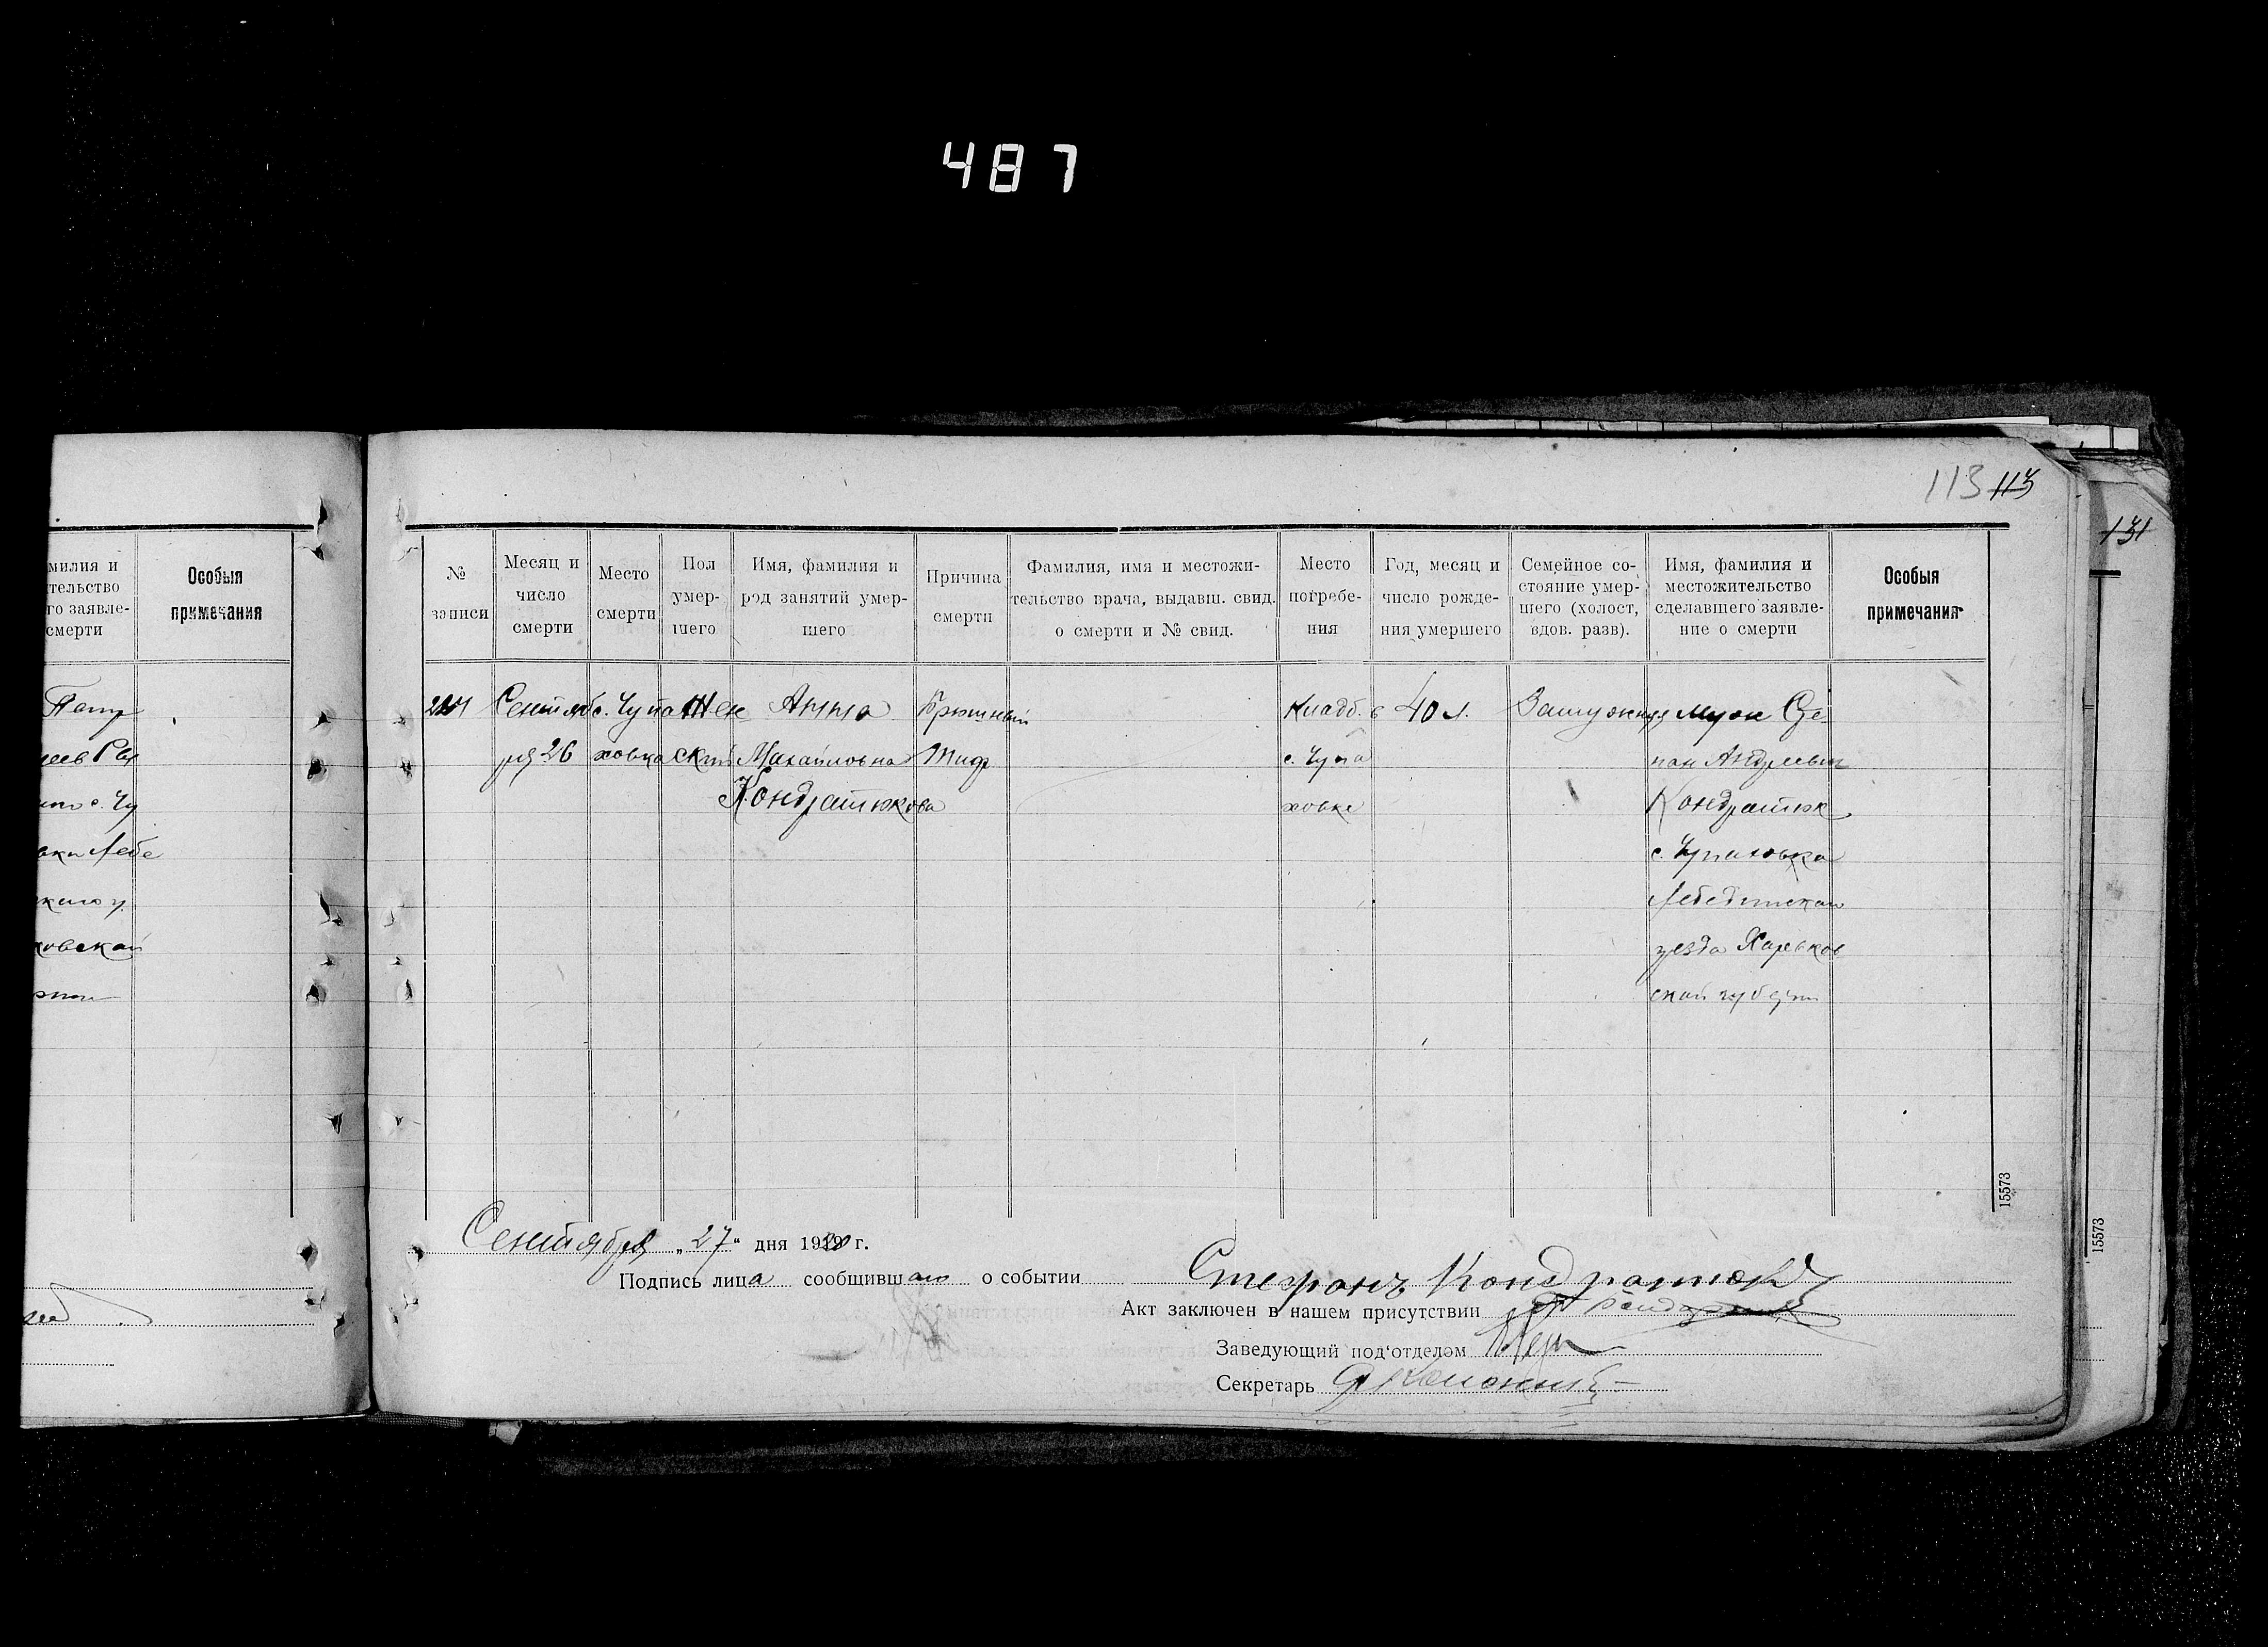 487
113 113
131
милия и
тельство
го заявле-
смерти
Особыя
примечания
№
записи
Месяц и
число
смерти
Место
смерти
Пол
умер-
шего
Имя, фамилия и
род занятий умер-
шего
Причина
смерти
Фамилия, имя и местожи-
тельство врача, выдавш. свид.
о смерти и № свид.
Место
погребе-
ния
Год, месяц и
число рожде-
ния умершего
Семейное со-
стояние умер-
шего (холост,
вдов. разв).
Имя, фамилия и
местожительство
сделавшего заявле-
ние о смерти
Особыя
примечания
Петр
с. Чу
Лебе
ховской
Сентяб
ря 26
с. Чупа
ховка
Жен
ский
Анна
Михайловна
Кондратюкова
Брюшный
Тиф
Кладб. в
с. Чупа
ховке
40 л.
Замужняя
Муж Сте-
пан Андреевич
Кондратюк
с. Чупаховка
Лебединскаго
уезда Харьков
ской губерни
15573
15573
Сентября „27“ дня 1920 г.
Подпись лица сообщившаго о событии Стефанъ Кондратюкъ
Акт заключен в нашем присутствии
Заведующий под'отделом
Секретарь